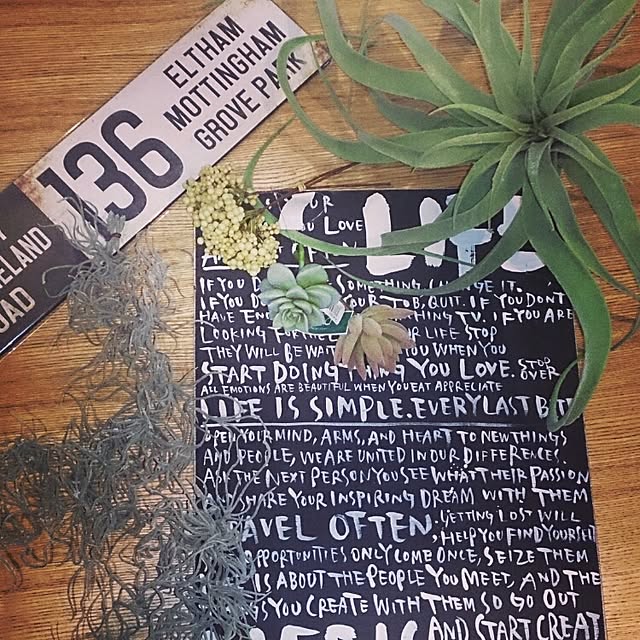 136
ELTHAM
MOTTINGHAM
GROVE PARK
ELAND
OAD
OUR
YOU LOVE
LIFE
IF YOU D SOMETHING, CHANGE IT.
IF YOU D YOUR JOB, QUIT. IF YOU DON'T
HAVE EN CHING TV. IF YOU ARE
LOOKING FOR THE OUR LIFE STOP
THEY WILL BE WAIT YOU WHEN YOU
START DOING THING YOU LOVE. STOP
OVER
ALL EMOTIONS ARE BEAUTIFUL WHEN YOU EAT APPRECIATE
LIFE IS SIMPLE. EVERY LAST BITE
OPEN YOUR MIND, ARMS, AND HEART TO NEW THINGS
AND PEOPLE, WE ARE UNITED IN OUR DIFFERENCES.
ASK THE NEXT PERSON YOU SEE WHAT THEIR PASSION
AND SHARE YOUR INSPIRING DREAM WITH THEM
AVEL OFTEN; GETTING LOST WILL
HELP YOU FIND YOURSELF
OPPORTUNITIES ONLY COME ONCE, SEIZE THEM
IS ABOUT THE PEOPLE YOU MEET, AND THE
GS YOU CREATE WITH THEM SO GO OUT
AND START CREAT